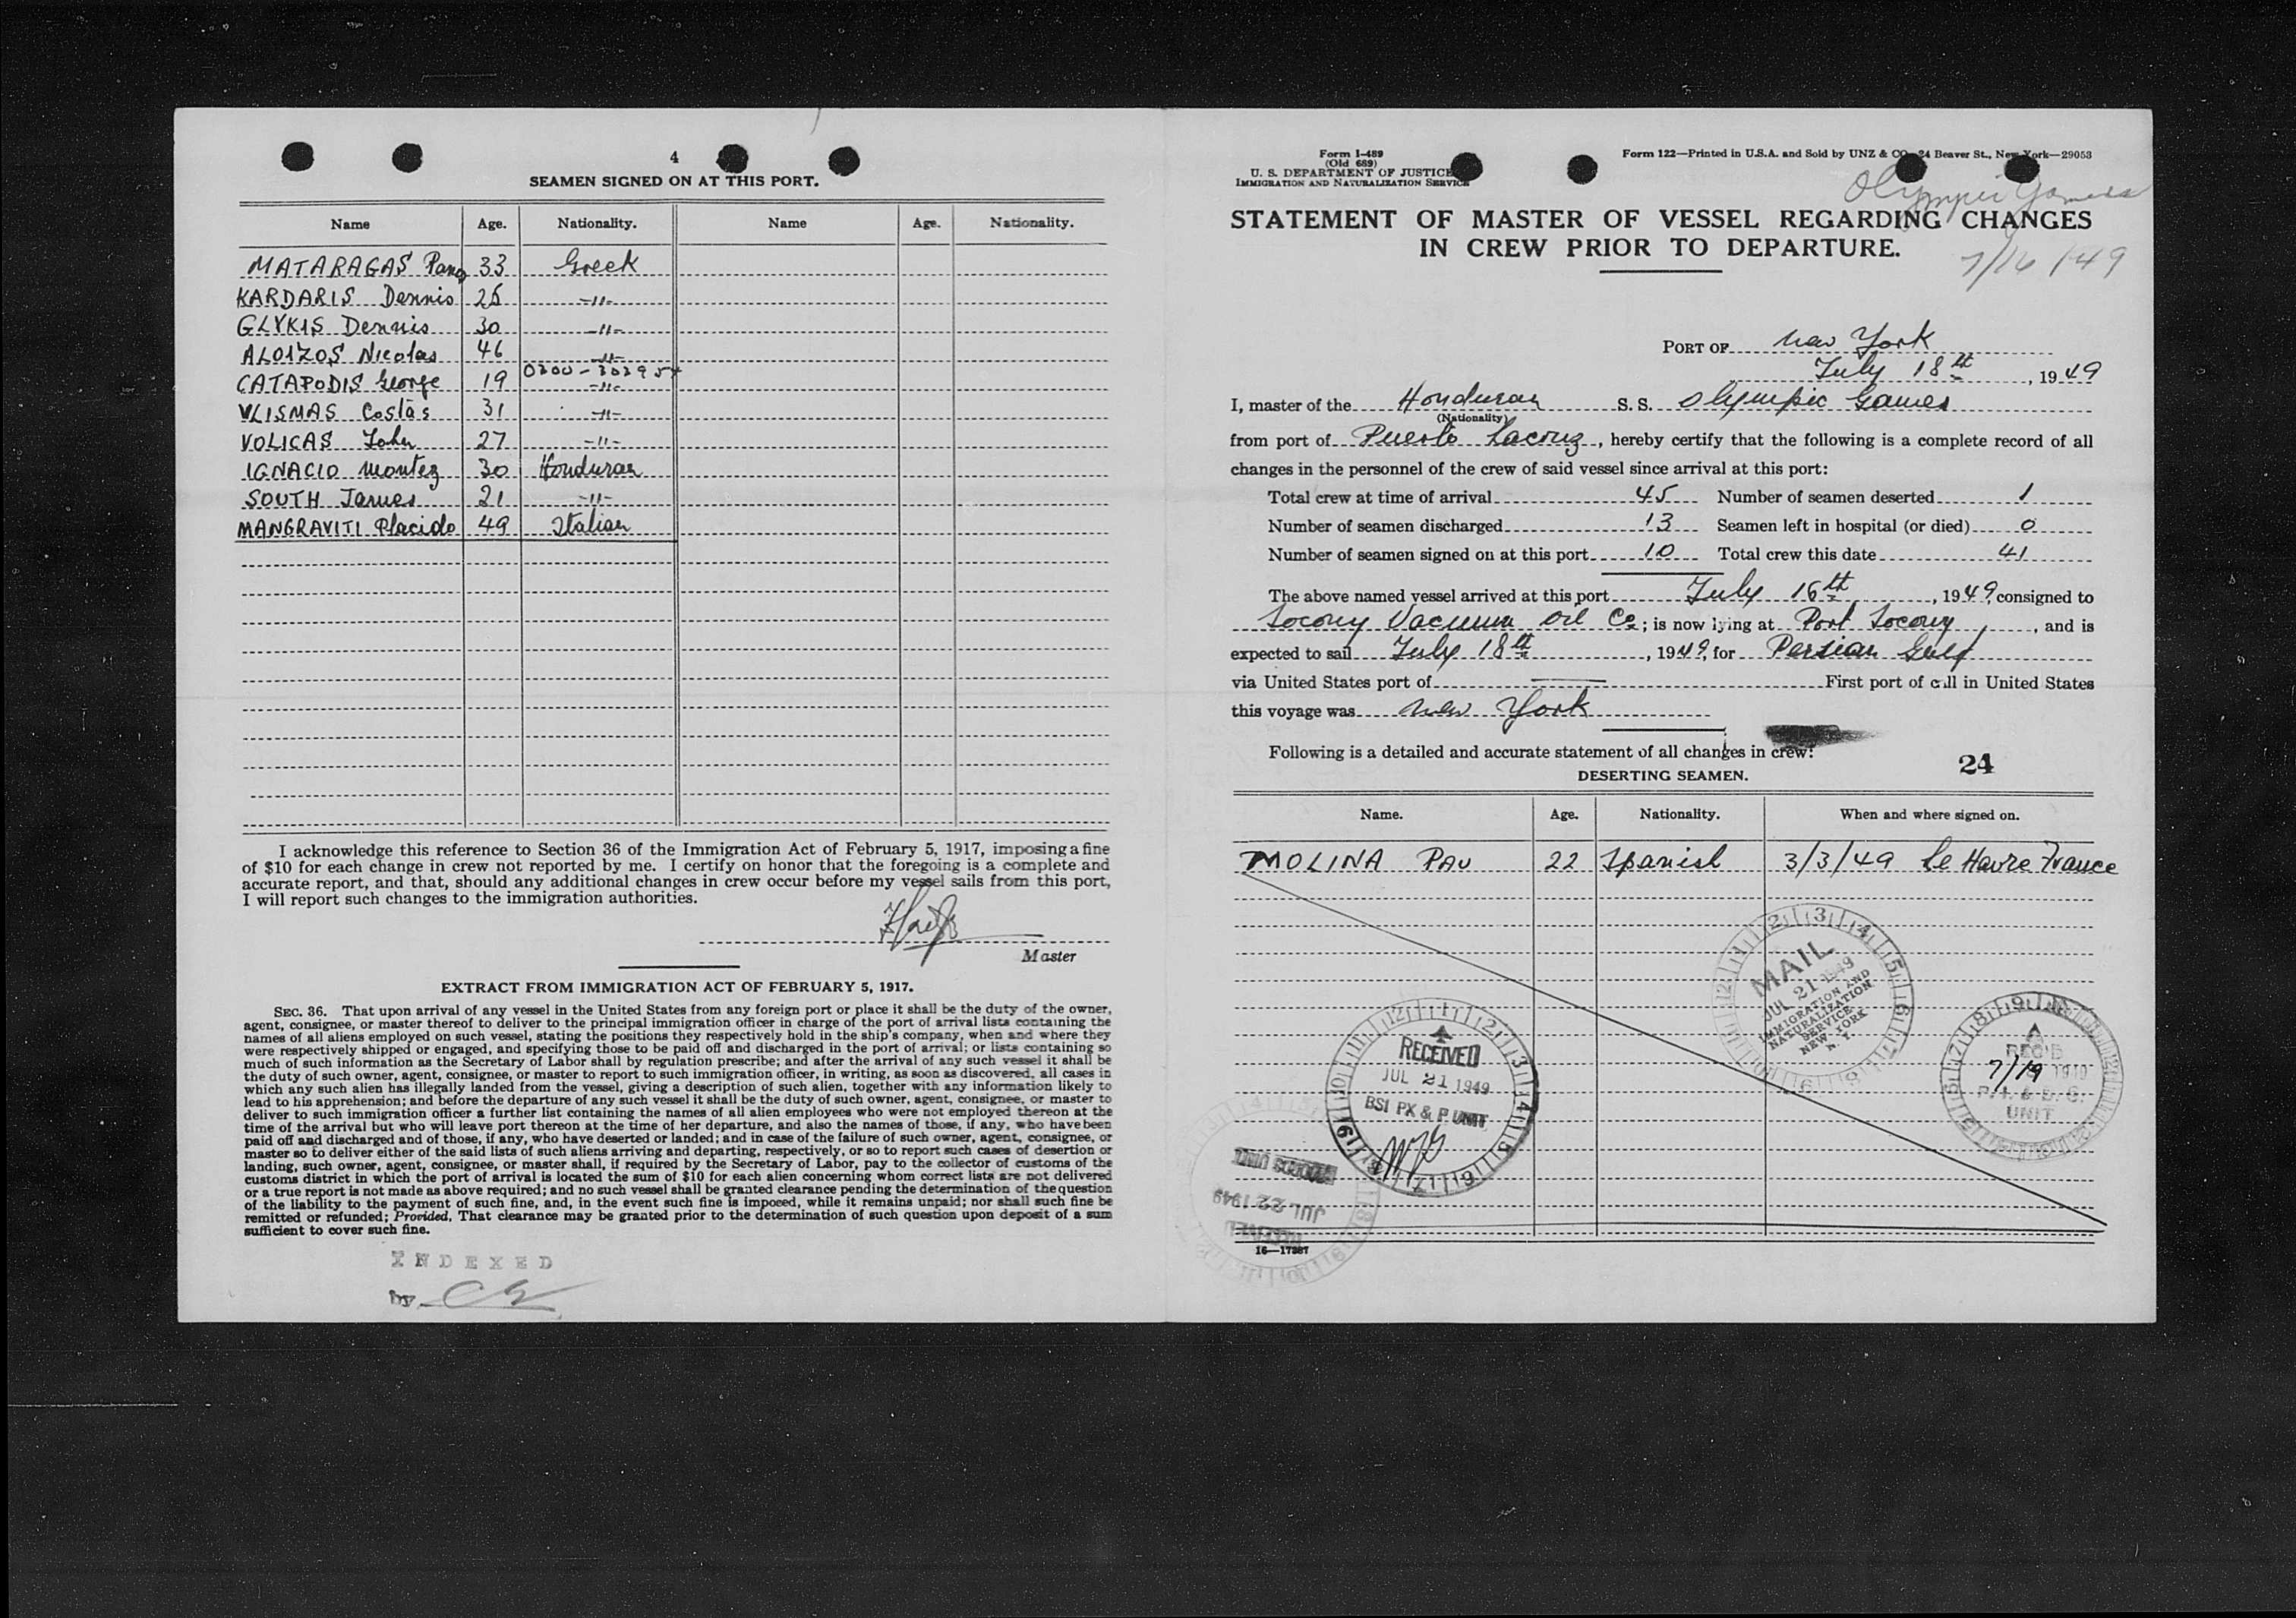 4
SEAMEN SIGNED ON AT THIS PORT.
Name Age. Nationality. Name Age. Nationality.
MATARAGAS Pano 33 Greek
KARDARIS Dennis 25 -"-
GLYKIS Dennis 30 -"-
ALOIZOS Nicolas 46 -"-
0300-30395
CATAPODIS George 19 -"-
VLISMAS Costas 31 -"-
VOLICAS John 27 -"-
IGNACIO Montez 30 Honduran
SOUTH James 21 -"-
MANGRAVITI Placido 49 Italian
I acknowledge this reference to Section 36 of the Immigration Act of February 5, 1917, imposing a fine
of $10 for each change in crew not reported by me. I certify on honor that the foregoing is a complete and
accurate report, and that, should any additional changes in crew occur before my vessel sails from this port,
I will report such changes to the immigration authorities.
Master
EXTRACT FROM IMMIGRATION ACT OF FEBRUARY 5, 1917.
SEC. 36. That upon arrival of any vessel in the United States from any foreign port or place it shall be the duty of the owner,
agent, consignee, or master thereof to deliver to the principal immigration officer in charge of the port of arrival lists containing the
names of all aliens employed on such vessel, stating the positions they respectively hold in the ship's company, when and where they
were respectively shipped or engaged, and specifying those to be paid off and discharged in the port of arrival; or lists containing so
much of such information as the Secretary of Labor shall by regulation prescribe; and after the arrival of any such vessel it shall be
the duty of such owner, agent, consignee, or master to report to such immigration officer, in writing, as soon as discovered, all cases in
which any such alien has illegally landed from the vessel, giving a description of such alien, together with any information likely to
lead to his apprehension; and before the departure of any such vessel it shall be the duty of such owner, agent, consignee, or master to
deliver to such immigration officer a further list containing the names of all alien employees who were not employed thereon at the
time of the arrival but who will leave port thereon at the time of her departure, and also the names of those, if any, who have been
paid off and discharged and of those, if any, who have deserted or landed; and in case of the failure of such owner, agent, consignee, or
master so to deliver either of the said lists of such aliens arriving and departing, respectively, or so to report such cases of desertion or
landing, such owner, agent, consignee, or master shall, if required by the Secretary of Labor, pay to the collector of customs of the
customs district in which the port of arrival is located the sum of $10 for each alien concerning whom correct lists are not delivered
or a true report is not made as above required; and no such vessel shall be granted clearance pending the determination of the question
of the liability to the payment of such fine, and, in the event such fine is imposed, while it remains unpaid; nor shall such fine be
remitted or refunded; Provided, That clearance may be granted prior to the determination of such question upon deposit of a sum
sufficient to cover such fine.
INDEXED
by
Form I-489
(Old 689)
U. S. DEPARTMENT OF JUSTICE
IMMIGRATION AND NATURALIZATION SERVICE
Form 122—Printed in U.S.A. and Sold by UNZ & CO. 24 Beaver St., New York—29053
Olympic Games
7/16/49
STATEMENT OF MASTER OF VESSEL REGARDING CHANGES
IN CREW PRIOR TO DEPARTURE.
PORT OF New York
July 18th, 1949
I, master of the Honduran S. S. Olympic Games
(Nationality)
from port of Puerto Lacruz, hereby certify that the following is a complete record of all
changes in the personnel of the crew of said vessel since arrival at this port:
Total crew at time of arrival 45 Number of seamen deserted 1
Number of seamen discharged 13 Seamen left in hospital (or died) 0
Number of seamen signed on at this port 10 Total crew this date 41
The above named vessel arrived at this port July 16th, 1949, consigned to
Socony Vacuum Oil Co; is now lying at Port Socony, and is
expected to sail July 18th, 1949, for Persian Gulf
via United States port of — First port of call in United States
this voyage was New York
Following is a detailed and accurate statement of all changes in crew:
24
DESERTING SEAMEN.
Name. Age. Nationality. When and where signed on.
MOLINA PAU 22 Spanish 3/3/49 Le Havre France
MAIL
JUL 21 1949
IMMIGRATION AND
NATURALIZATION
SERVICE
NEW YORK
N. Y.
RECEIVED
JUL 21 1949
BSI PX & P. UNIT
REC'D
7/19 1949
UNIT
JUL 22 1949
RECEIVED
16—17387